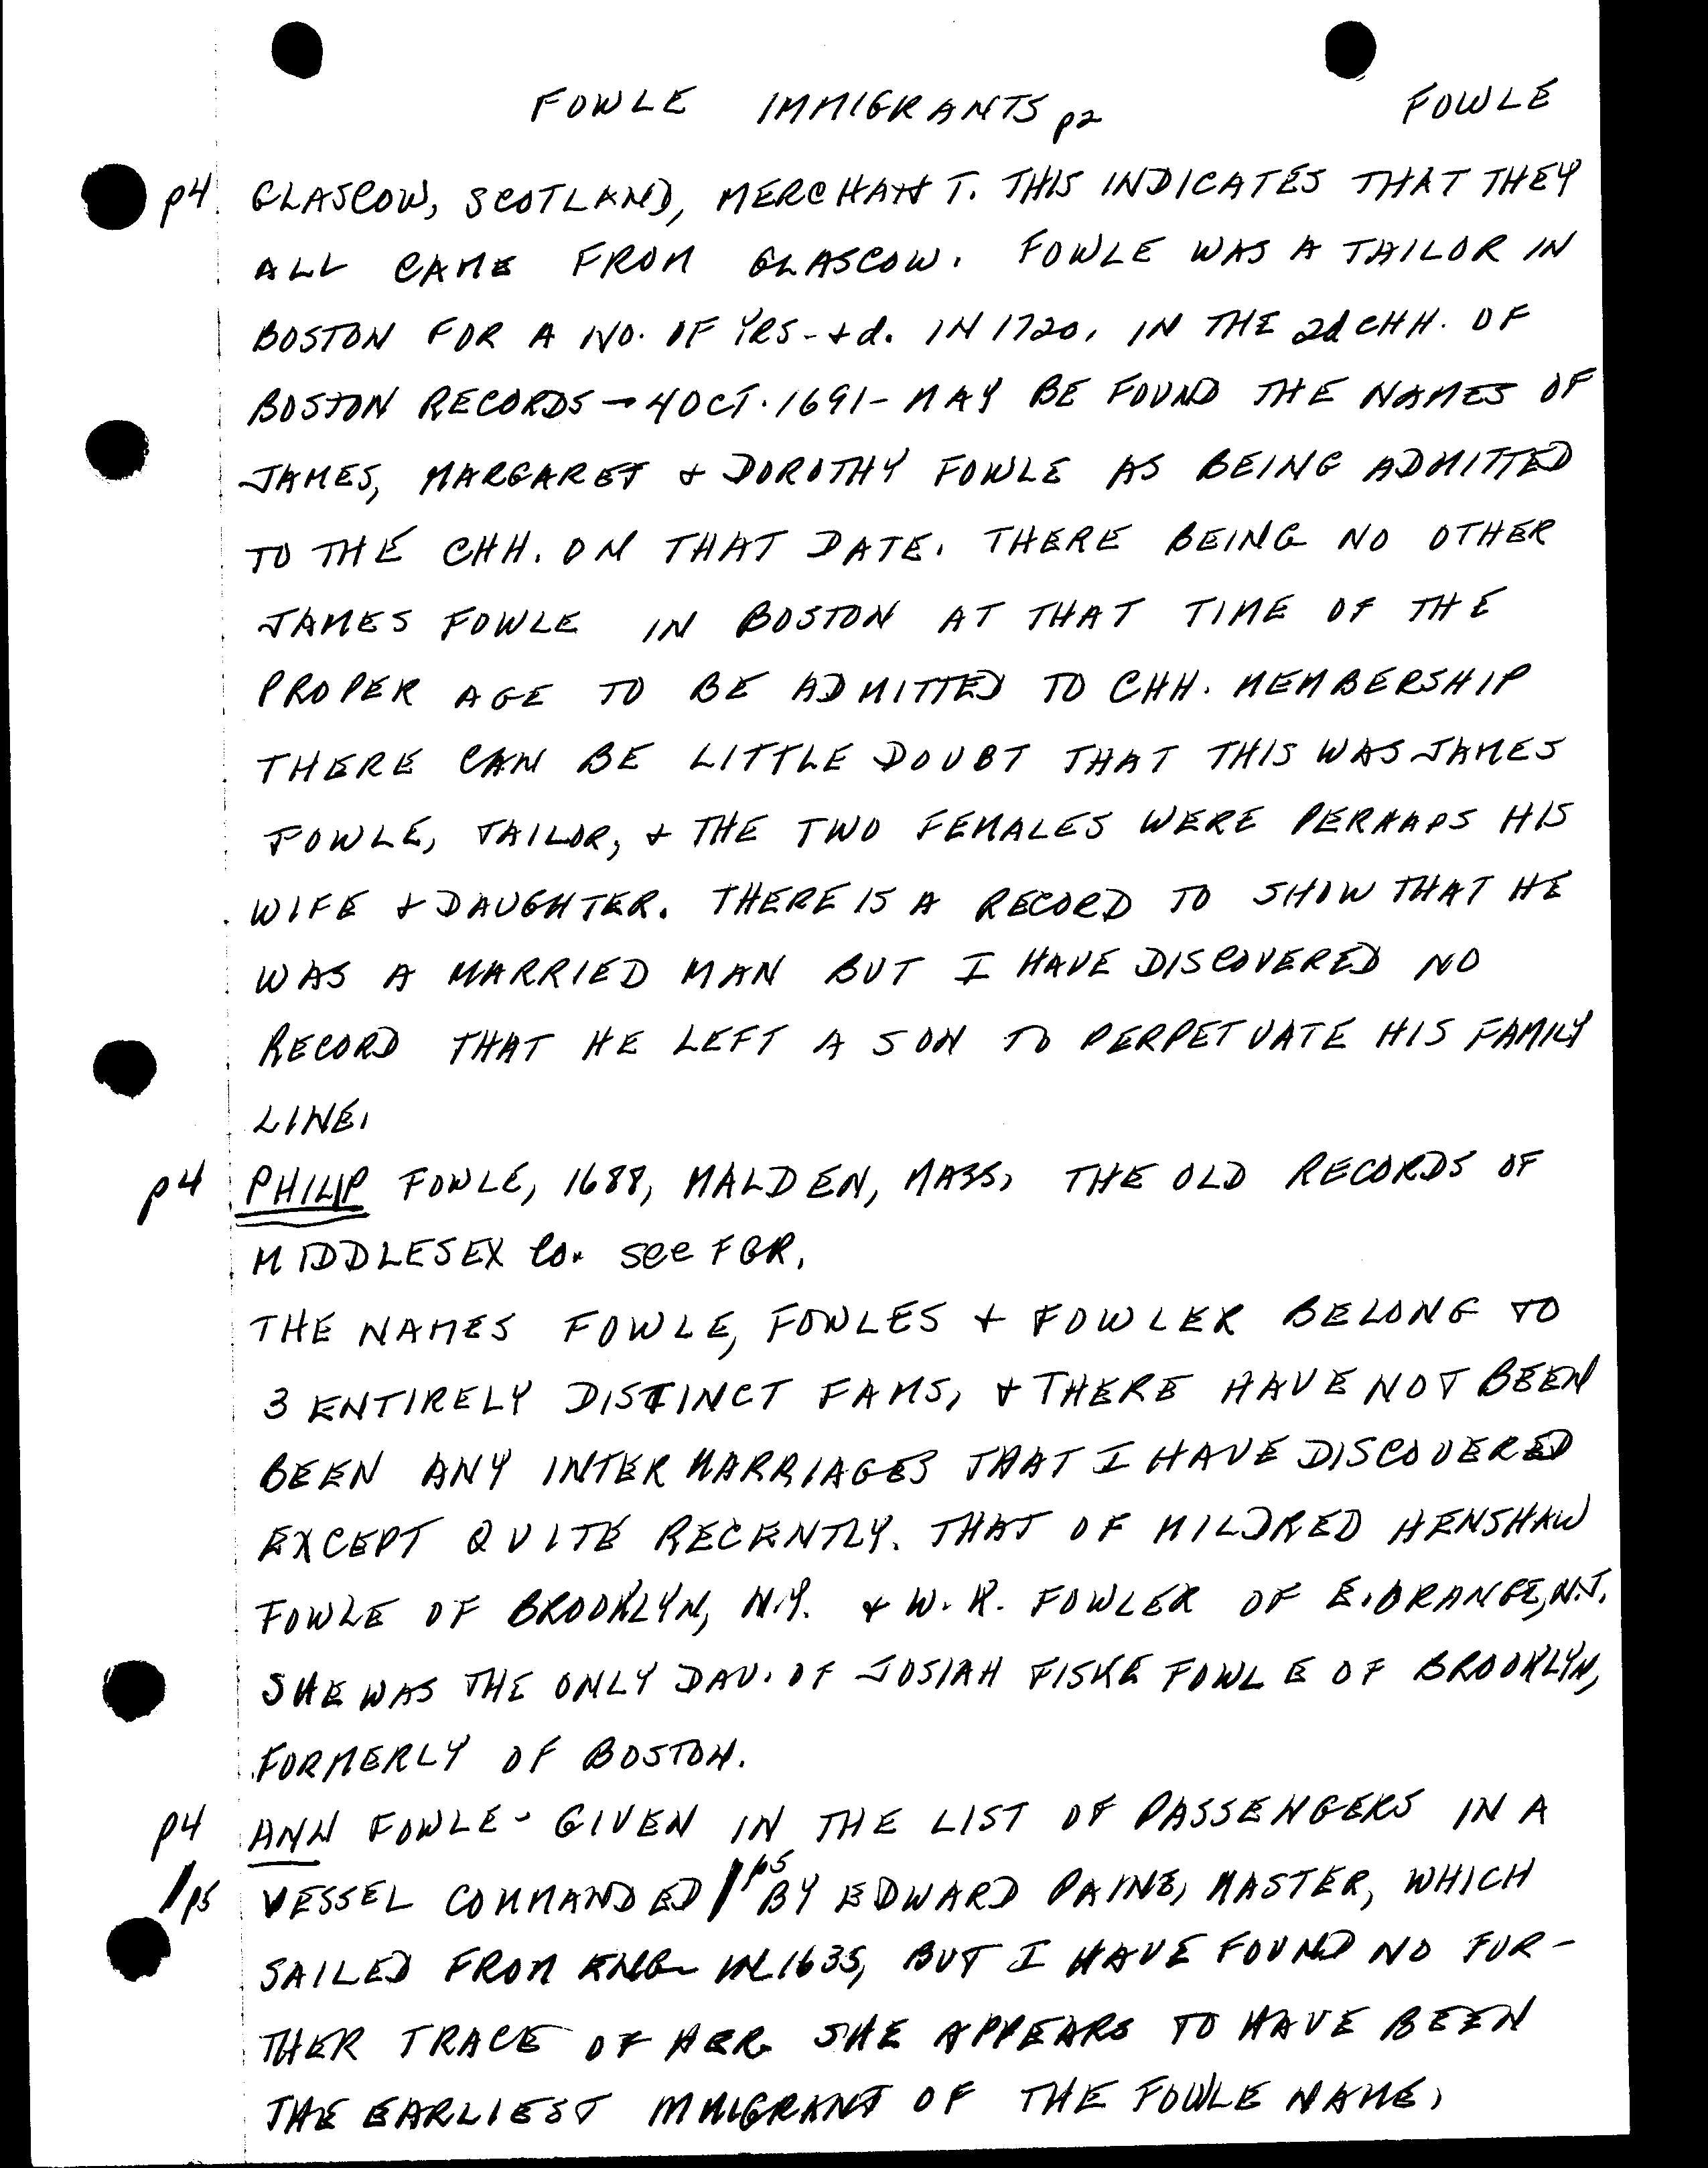 FOWLE IMMIGRANTS p2 FOWLE
p4 GLASCOW, SCOTLAND, MERCHANT. THIS INDICATES THAT THEY
ALL CAME FROM GLASCOW. FOWLE WAS A TAILOR IN
BOSTON FOR A NO. OF YRS - + d. IN 1720. IN THE 2d CHH. OF
BOSTON RECORDS → 4 OCT. 1691 - MAY BE FOUND THE NAMES OF
JAMES, MARGARET + DOROTHY FOWLE AS BEING ADMITTED
TO THE CHH. ON THAT DATE. THERE BEING NO OTHER
JAMES FOWLE IN BOSTON AT THAT TIME OF THE
PROPER AGE TO BE ADMITTED TO CHH. MEMBERSHIP
THERE CAN BE LITTLE DOUBT THAT THIS WAS JAMES
FOWLE, TAILOR, + THE TWO FEMALES WERE PERHAPS HIS
WIFE + DAUGHTER. THERE IS A RECORD TO SHOW THAT HE
WAS A MARRIED MAN BUT I HAVE DISCOVERED NO
RECORD THAT HE LEFT A SON TO PERPETUATE HIS FAMILY
LINE.
p4 PHILIP FOWLE, 1688, MALDEN, MASS, THE OLD RECORDS OF
MIDDLESEX Co. see FGR.
THE NAMES FOWLE, FOWLES + FOWLER BELONG TO
3 ENTIRELY DISTINCT FAMS, + THERE HAVE NOT BEEN
BEEN ANY INTERMARRIAGES THAT I HAVE DISCOVERED
EXCEPT QUITE RECENTLY. THAT OF MILDRED HENSHAW
FOWLE OF BROOKLYN, N.Y. + W. H. FOWLER OF E. ORANGE, N.J.
SHE WAS THE ONLY DAU. OF JOSIAH FISKE FOWLE OF BROOKLYN,
FORMERLY OF BOSTON.
p4 ANN FOWLE - GIVEN IN THE LIST OF PASSENGERS IN A
/p5 VESSEL COMMANDED /p5 BY EDWARD PAINE, MASTER, WHICH
SAILED FROM ENG. IN 1635, BUT I HAVE FOUND NO FUR-
THER TRACE OF HER. SHE APPEARS TO HAVE BEEN
THE EARLIEST IMMIGRANT OF THE FOWLE NAME.